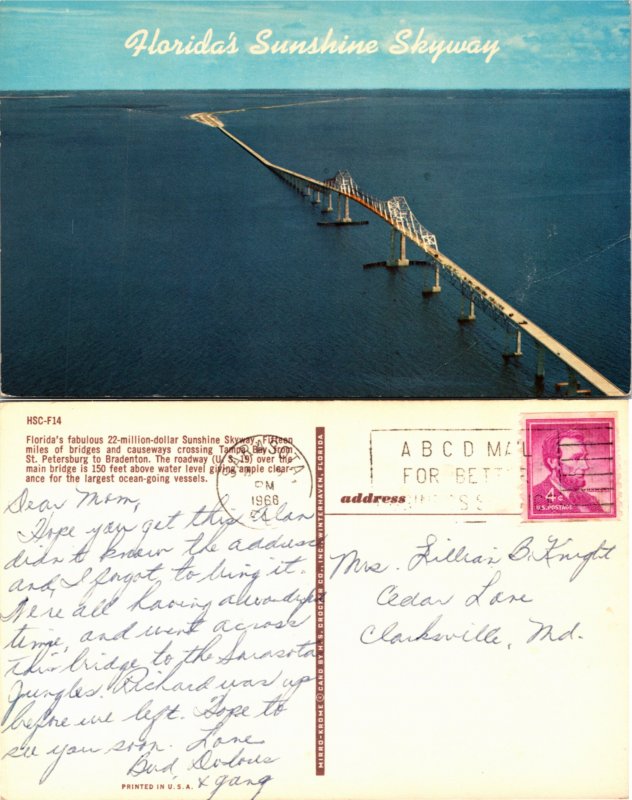 Florida's Sunshine Skyway
HSC-F14
Florida's fabulous 22-million-dollar Sunshine Skyway. Fifteen
miles of bridges and causeways crossing Tampa Bay from
St. Petersburg to Bradenton. The roadway (U. S. 19) over the
main bridge is 150 feet above water level giving ample clear-
ance for the largest ocean-going vessels.
Dear Mom,
Hope you get this. Alan
didn't know the address
and, I forgot to bring it.
We're all having a
time, and went across
this bridge to the Sarasota
Jungles. Richard was up
before we left. Hope to
see you soon. Love
Bud, Dolores
& gang
PRINTED IN U.S.A.
MIRRO-KROME © CARD BY H. S. CROCKER CO., INC., WINTERHAVEN, FLORIDA
PM
1966
A B C D MAIL
FOR BETTER
4¢
U.S. POSTAGE
address
Mrs. Lillian B. Knight
Cedar Lane
Clarksville, Md.